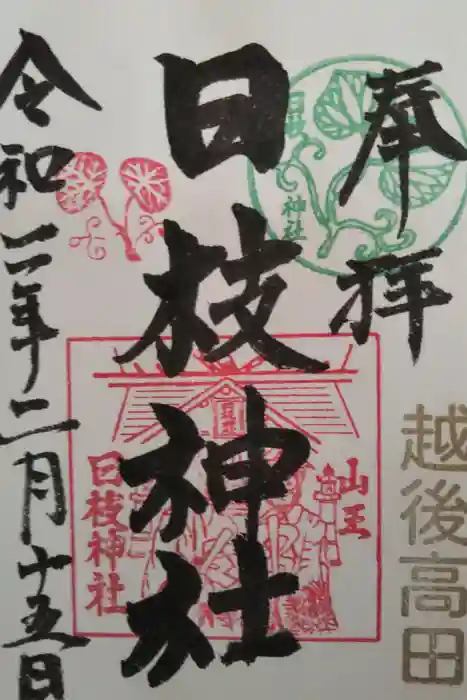 奉拝
越後高田
日枝神社
日枝
神社
山王
日枝神社
令和二年二月十五日